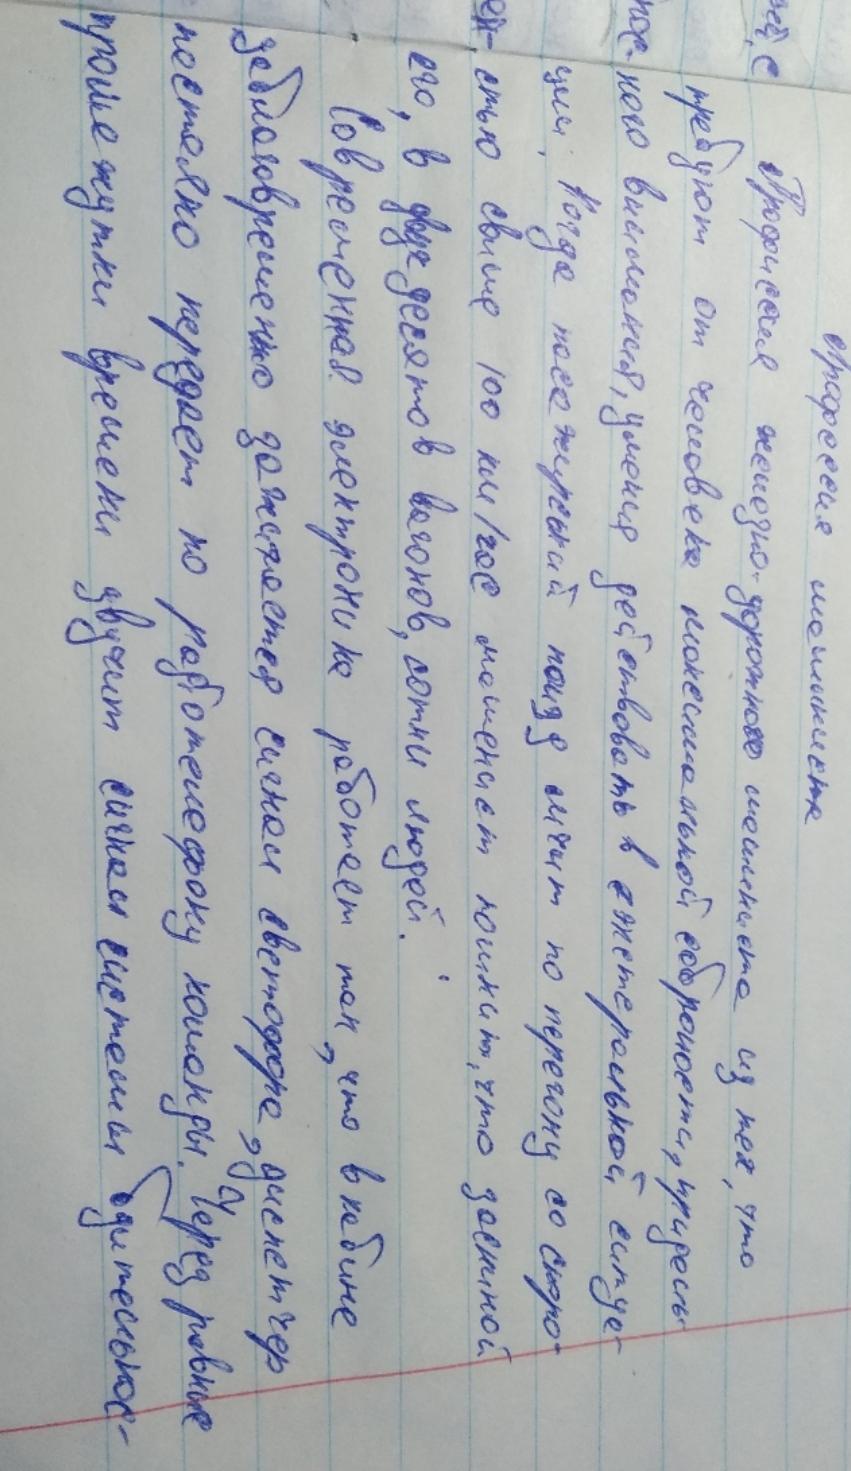 Профессия машиниста
Профиссия железно-дорожного машиниста из тех, что
требуют от человека максимальной собраности, придель-
ного внимания, умения действовать в экстремальной ситуа-
ции. Когда пасажирский поизд мчит по перегону со скоро-
стью свыше 100 км/час машенист помнит, что за спиной
его, в двух десятов вагонов, сотни людей.
Современная электроника работает так, что в кабине
заблаговременно зажигается сигнал светофора, диспетчер
постояно передает по работелефону команды. Через равные
промежутки времени звучит сигнал системы бдительнос-